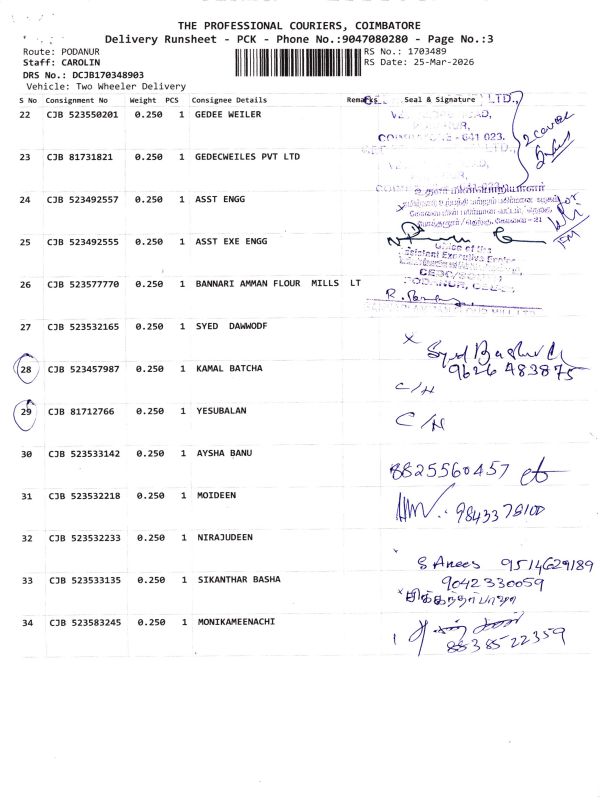 THE PROFESSIONAL COURIERS, COIMBATORE
Delivery Runsheet - PCK - Phone No.:9047080280 - Page No.:3
Route: PODANUR RS No.: 1703489
Staff: CAROLIN RS Date: 25-Mar-2026
DRS No.: DCJB170348903
Vehicle: Two Wheeler Delivery
S No Consignment No Weight PCS Consignee Details Remarks Seal & Signature
22 CJB 523550201 0.250 1 GEDEE WEILER
LTD.,
PODANUR,
COIMBATORE - 641 023.
2 cover
23 CJB 81731821 0.250 1 GEDECWEILES PVT LTD
LTD.,
24 CJB 523492557 0.250 1 ASST ENGG
உதவி மின்பொறியாளர்
25 CJB 523492555 0.250 1 ASST EXE ENGG
Office of the
Assistant Executive Engineer
PODANUR,
26 CJB 523577770 0.250 1 BANNARI AMMAN FLOUR MILLS LT
27 CJB 523532165 0.250 1 SYED DAWWODF x
Syed Basha
28 CJB 523457987 0.250 1 KAMAL BATCHA 9626483875
C/N
29 CJB 81712766 0.250 1 YESUBALAN C/N
30 CJB 523533142 0.250 1 AYSHA BANU 8825560457
31 CJB 523532218 0.250 1 MOIDEEN 9843378100
32 CJB 523532233 0.250 1 NIRAJUDEEN
S Anees 9514629189
33 CJB 523533135 0.250 1 SIKANTHAR BASHA 9042330059
x சிக்கந்தர் பாஷா
34 CJB 523583245 0.250 1 MONIKAMEENACHI
8838522359